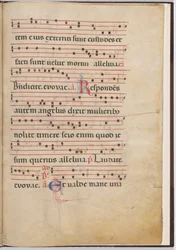 tem eius exterriti sunt custodes et
facti sunt uelut mortui alleluia
Bndicite. euouae. a. Respondēs
autem angelus dixit mulierib
nolite timere scio enim quod ie
sum queritis alleluia. p. Laudate
euouae. a. Et ualde mane una